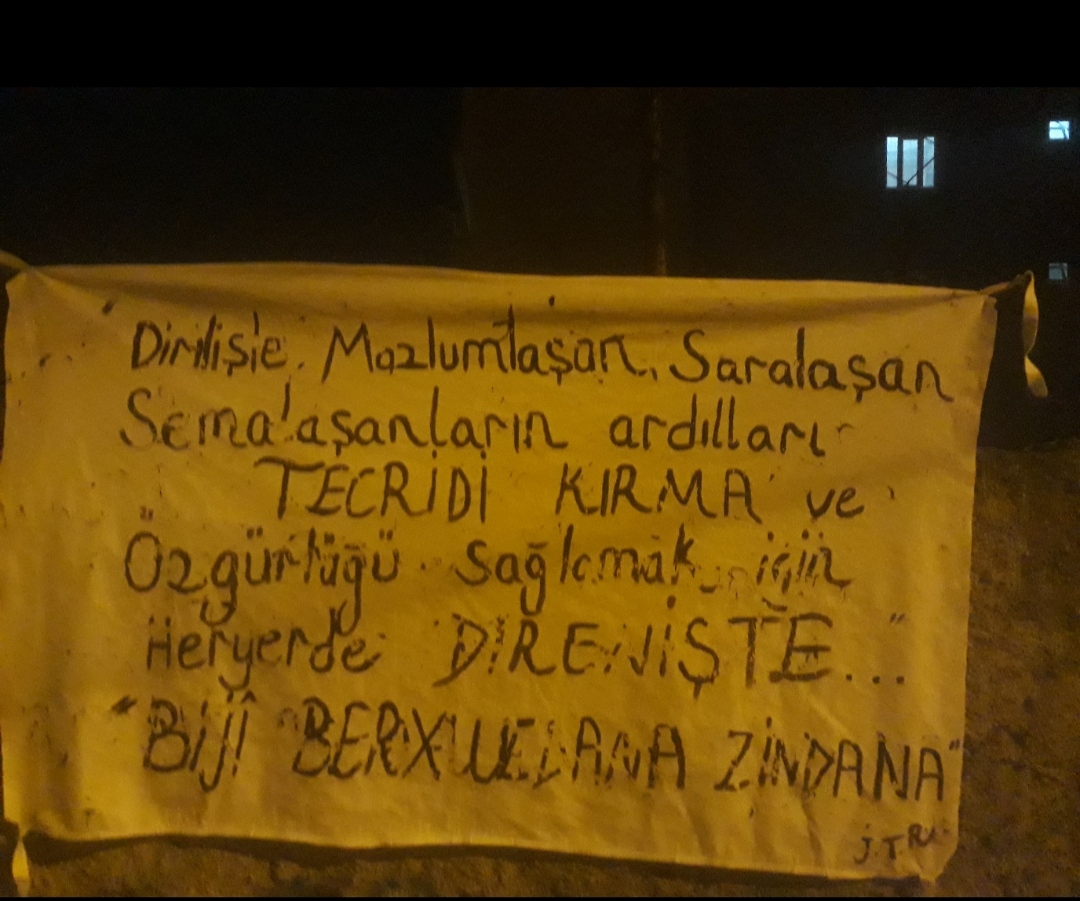 Dirilişle, Mazlumlaşan, Saralaşan
Sema'laşanların ardılları
TECRİDİ KIRMA ve
Özgürlüğü sağlamak için
Heryerde DİRENİŞTE..."
"BİJÎ BERXWEDANA ZİNDANA"